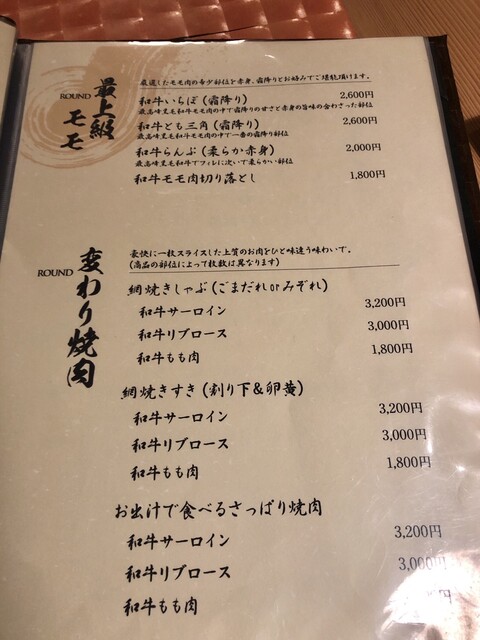 最上級モモ
ROUND
厳選したモモ肉の希少部位を赤身、霜降りとお好みでご堪能頂けます。
和牛いちぼ(霜降り) 2,600円
最高峰黒毛和牛モモ肉の中で霜降りの甘さと赤身の旨味の合わさった部位
和牛とも三角(霜降り) 2,600円
最高峰黒毛和牛モモ肉の中で一番の霜降り部位
和牛らんぷ(柔らか赤身) 2,000円
最高峰黒毛和牛でフィレに次いで柔らかい部位
和牛モモ肉切り落とし 1,800円
変わり焼肉
ROUND
豪快に一枚スライスした上質のお肉をひと味違う味わいで。
(商品の部位によって枚数は異なります)
網焼きしゃぶ(ごまだれorみぞれ)
和牛サーロイン 3,200円
和牛リブロース 3,000円
和牛もも肉 1,800円
網焼きすき(割り下&卵黄)
和牛サーロイン 3,200円
和牛リブロース 3,000円
和牛もも肉 1,800円
お出汁で食べるさっぱり焼肉
和牛サーロイン 3,200円
和牛リブロース 3,000円
和牛もも肉